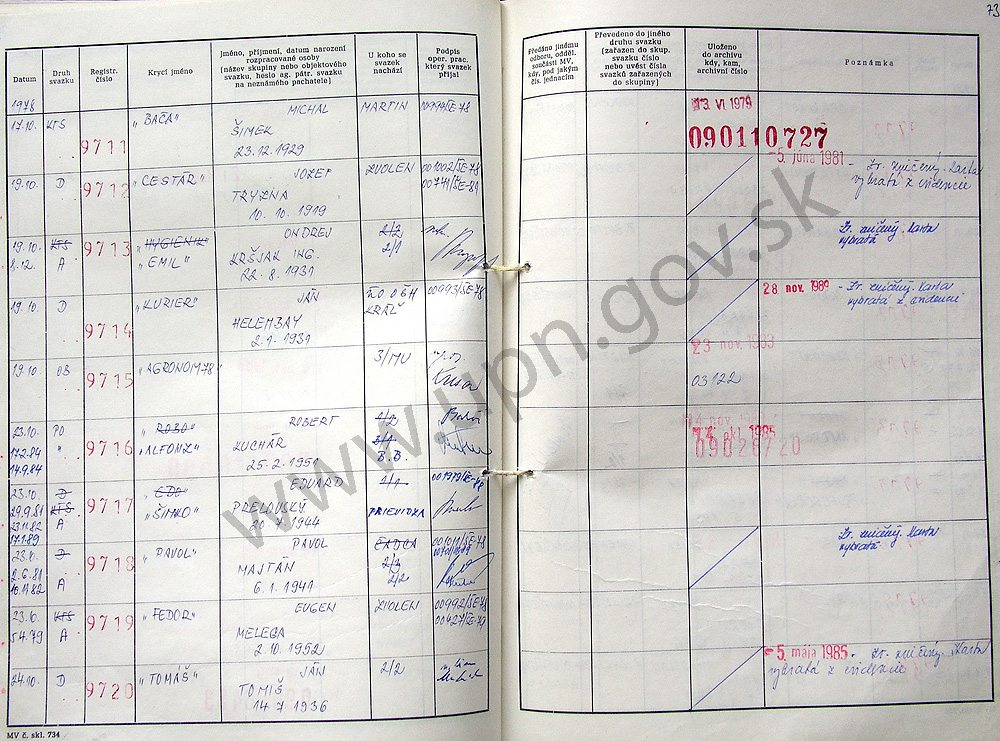 73
Datum
Druh svazku
Registr. číslo
Krycí jméno
Jméno, příjmení, datum narození rozpracované osoby (název skupiny nebo objektového svazku, heslo ag. pátr. svazku na neznámého pachatele)
U koho se svazek nachází
Podpis oper. prac. který svazek přijal
Předáno jinému odboru, odděl. součásti MV, kdy, pod jakým čís. jednacím
Převedeno do jiného druhu svazku (zařazen do skup. svazku číslo nebo uvést čísla svazků zařazených do skupiny)
Uloženo do archivu kdy, kam, archivní číslo
Poznámka
1978
17.10. KTS 9711 „BAČA" MICHAL MARTIN
ŠIMEK
23.12.1929
13. VI 1979
090110727
19.10. D 9712 „CESTÁR" JOZEF ZVOLEN 001002/ŠE-78
TRYZNA 00741/ŠE-81
10.10.1919
-5. júna 1981 - Zv. zničený. Karta
vybratá z evidencie
19.10. KTS 9713 „HYGIENIK" ONDREJ 2/2
8.12. A „EMIL" KRŠJAK ING. 2/1
22.8.1931
Zv. zničený. Karta
vybratá.
19.10. D 9714 „KURIER" JÁN 00993/ŠE-78
KRÁĽ
HELEMBAY
2.1.1931
28. nov. 1980 - Zv. zničený. Karta
vybratá z evidencie
19.10 OB 9715 „AGRONOM 78" 3/MU
23 nov. 1983
03122
23.10. PO 9716 „ROBO" ROBERT 2/2
17.2.84 " „ALFONZ" KUCHÁR
14.9.84 25.2.1951 B.B.
okt. 1985
09026720
23.10. D 9717 „EDO" EDUARD 2/1
29.9.81 KTS „ŠIMKO" PRELOVSKÝ PRIEVIDZA
23.11.82 A 20.7.1944
17.1.89
23.10. D 9718 „PAVOL" PAVOL ČADCA 001011/ŠE-78
2.6.81 MAJTÁN 2/2
10.11.82 A 6.1.1941 2/2
Zv. zničený. Karta
vybratá
23.10. KTS 9719 „FEDOR" EUGEN ZVOLEN 00992/ŠE-78
5.4.79 A MELEGA 00427/ŠE-79
2.10.1952
24.10. D 9720 „TOMÁŠ" JÁN 2/2
TOMIŠ
14.7.1936
-5. mája 1985 - Zv. zničený. Karta
vybratá z evidencie
MV č. skl. 734
www.upn.gov.sk